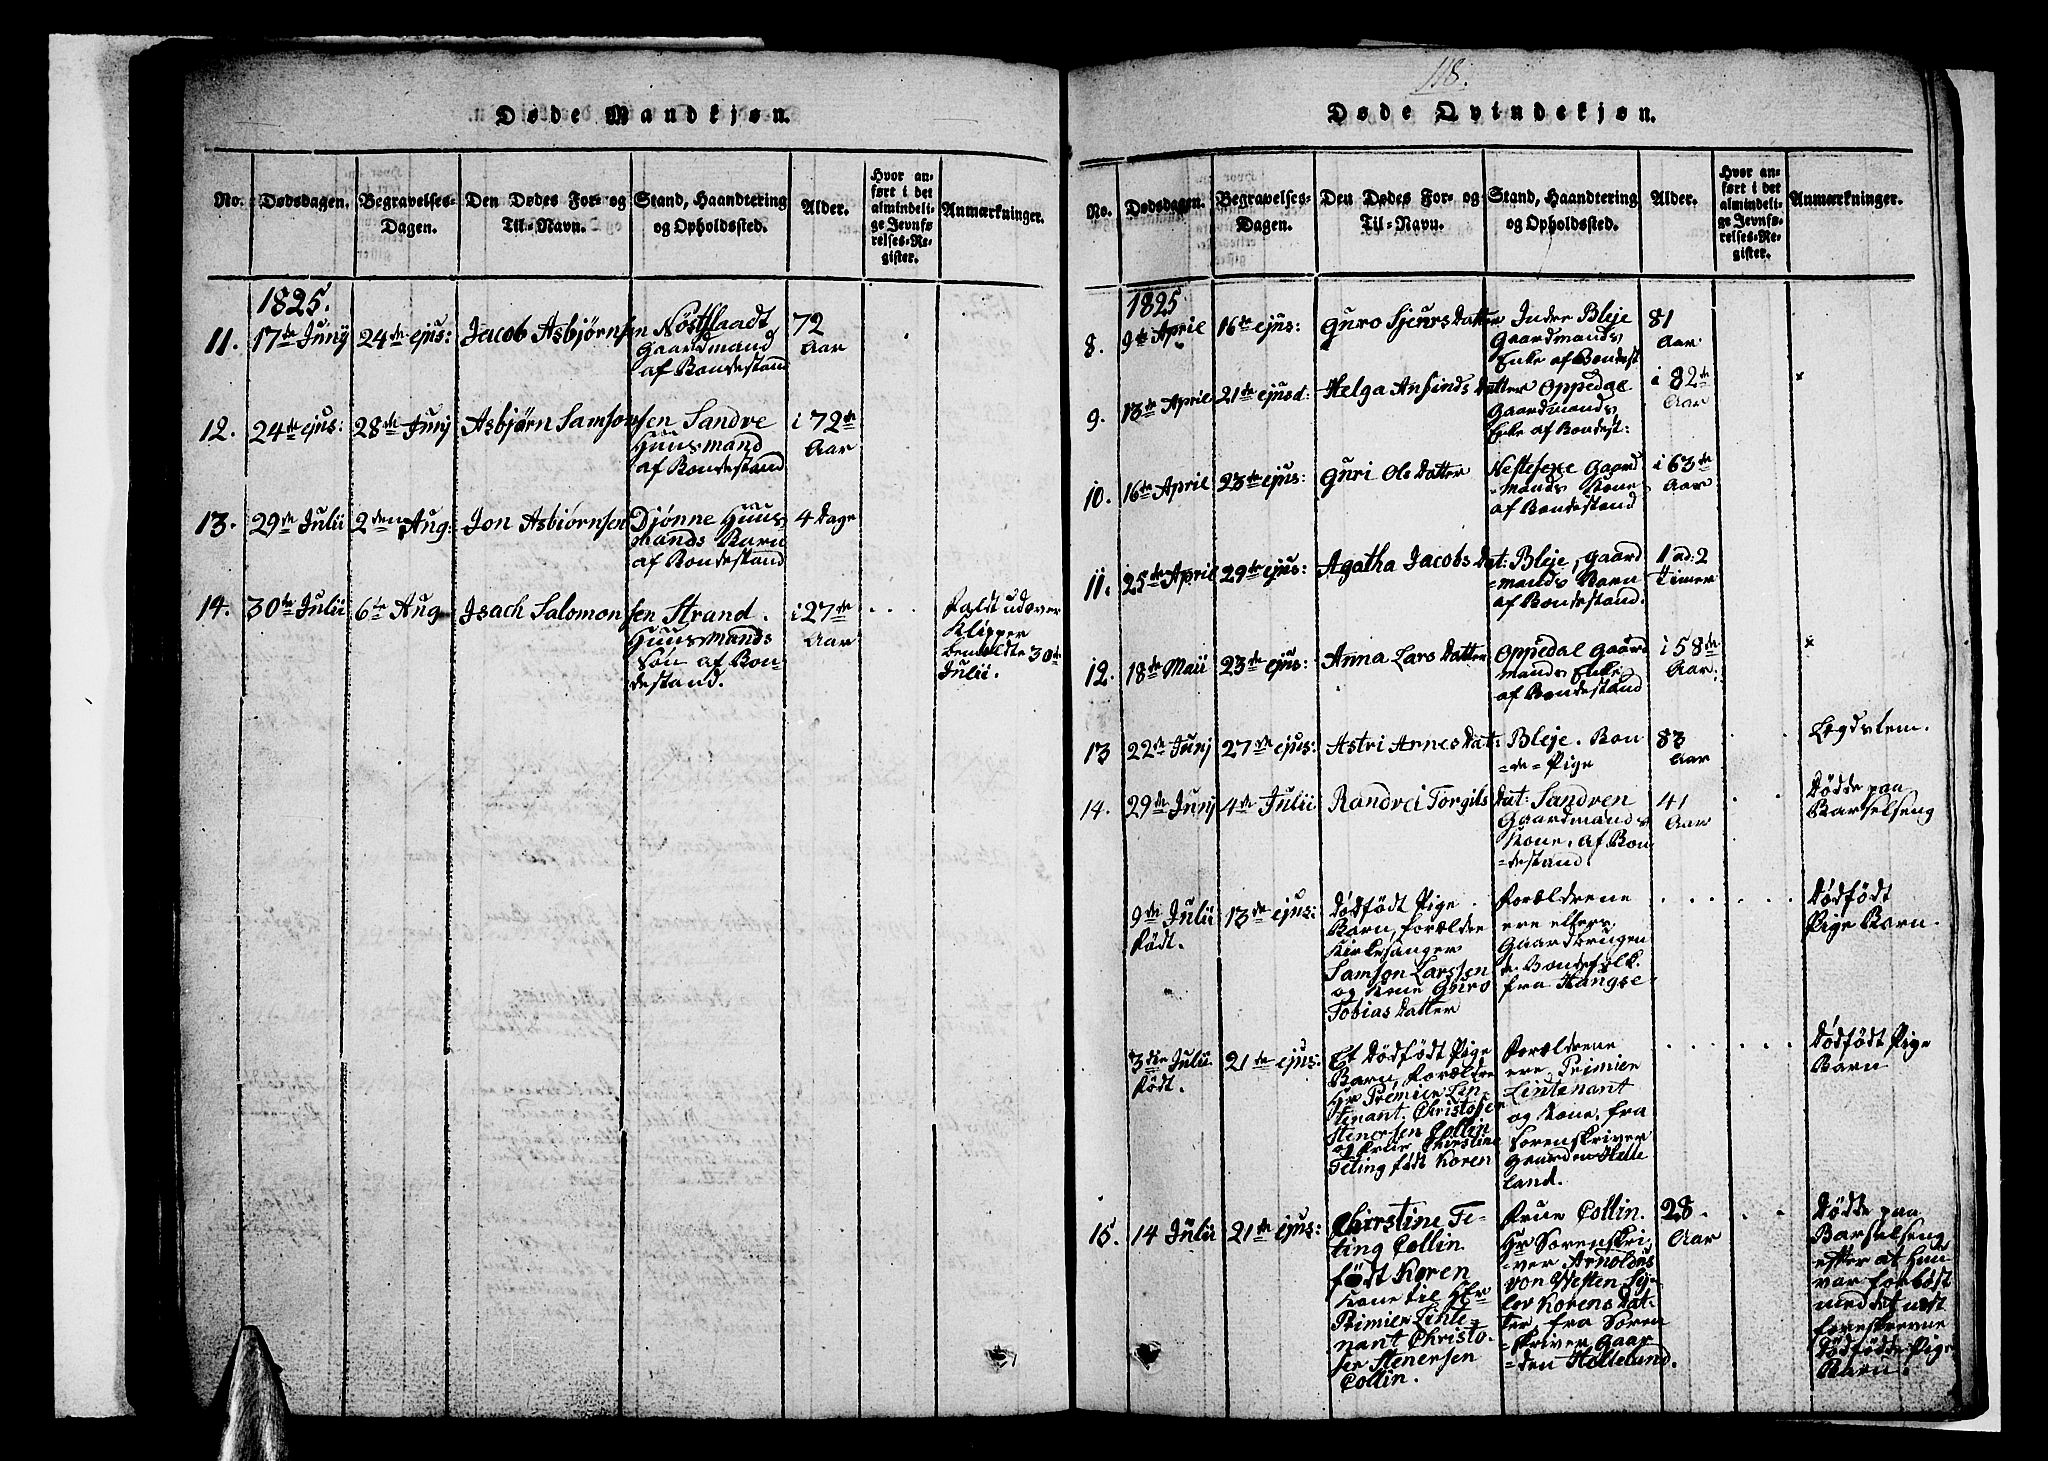 Døde Mandkjøn.
No.
Dødsdagen.
Begravelses-
Dagen.
Den Dødes For- og
Til-Navn.
Stand, Haandtering
og Opholdssted.
Alder.
Hvor an-
ført i det
almindeli-
ge Jevnfø-
relses-Re-
gister.
Anmærkninger.
1825.
11.
17de Junij
24de ejus:
Jacob Asbjørnsen
Nøstflaadt
Gaardmand
af Bondestand
72
Aar
12.
24de ejus:
28de Junij
Asbjørn Samsonsen
Sandre
Huusmand
af Bondestand
i 72de
Aar
13.
29de Julii
2den Aug:
Jon Asbiørnsen
Djønne Huus-
mands Barn
af Bondestand
4 Dage
14.
30de Julii
6te Aug
Isach Salomonsen
Strand.
Huusmands
Søn af Bon-
destand.
i 27de
Aar
Faldt udover
Klipper
bemeldte 30de
Julii.
118.
Døde Qvindekjøn.
No.
Dødsdagen.
Begravelses-
Dagen.
Den Dødes For- og
Til-Navn.
Stand, Haandtering
og Opholdssted.
Alder.
Hvor an-
ført i det
almindeli-
ge Jevnfø-
relses-Re-
gister.
Anmærkninger.
1825
8.
9de April
16de ejus:
Guro Sjeurs Datter
Indre Bleje
Gaardmands
Enke af Bondest
81
Aar
9.
13de April
21de ejusd:
Helga Ansinds Datter
Oppedal
Gaardmands
Enke af Bondest:
i 82de
Aar
10.
16de April
23de ejus:
Guri Ols Datter
Gaard
-mands Kone
af Bondestand
i 63de
Aar
11.
25de April
29de ejus:
Agatha Jacobs Dat:
Bleje, Gaard
-mands Barn
af Bondestand.
1 ad: 2
Timer
12.
18de Maii
23de ejus:
Anna Lars Datter
Oppedal Gaard
mands Enke
af Bondestand
i 58de
Aar
13
22de Junj
27de ejus:
Astri Arnes Dat:
Bleje. Bon
-de-Pige
83
Aar
Lægdslem.
14.
29de Junj
4de Julii
Randvei Torgils Dat:
Sandven
Gaardmands
Kone, af Bon
-destand.
41
Aar
Dødde paa
Barselseng
9de Julii
Født.
13de ejus:
Dødfødt Pige
Barn, forældre
Kirkesanger
Samson Larssen
og Kone Guro
Tobias Datter
Forældrene
ere ellers
Gaardbrugen
de Bondefolk
fra Hangse
Dødfødt
Pige Barn.
3die Julii
Født.
21de ejus:
Et Dødfødt Pige
Barn, Forældre
Hr Premier Lin-
tenant. Christofer
Stenersen Collin
og Frue Christine
Teting født Koren
Forældrene
ere Primier
Lintenant
og Kone, fra
Sorenskriver
Gaarden Helle
land.
Dødfødt Pige
Barn
15.
14 Julii
21de ejus:
Christine Te-
ting Collin
født Koren
Kone til Hr
Primier Linte-
nant Christo-
fer Stenersen
Collin.
Frue Collin.
Hr Sorenskri-
ver Arnoldus
von Westen Syl-
lov Korens Dat-
ter, fra Soren
-skriver Gaar
den Helleland.
28.
Aar
Dødde paa
Barselseng
efter at Hun
var forløst
med det næst
foreskrevne
Dødfødde Pige
Barn.